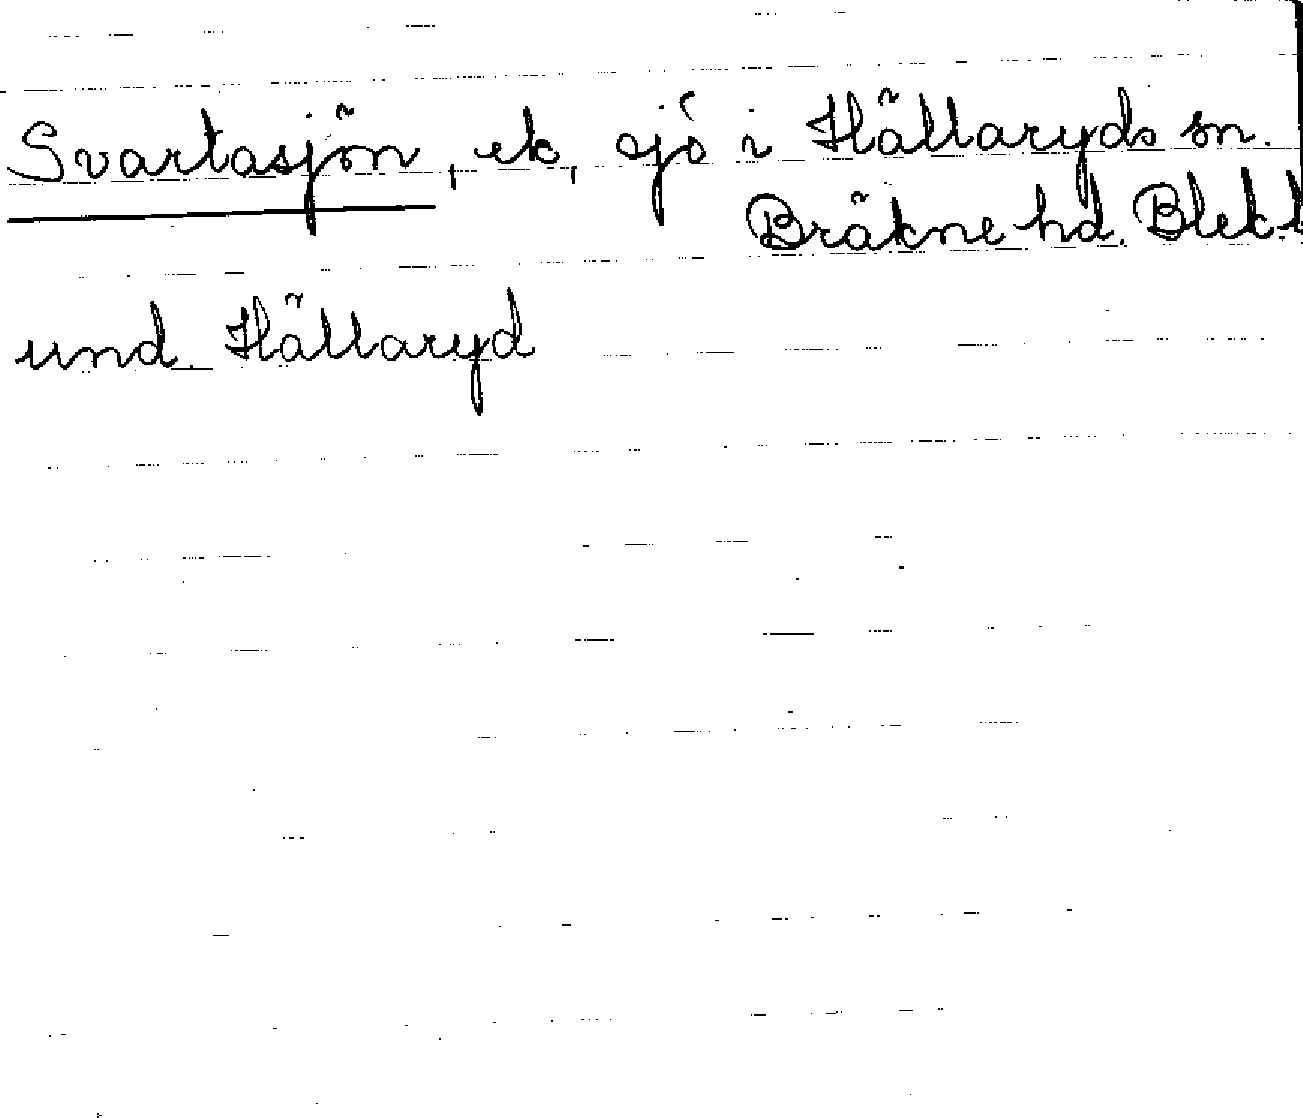 Svartasjön, ek, sjö i Hällaryds sn.
Bräkne hd. Blek. l
und. Hällaryd